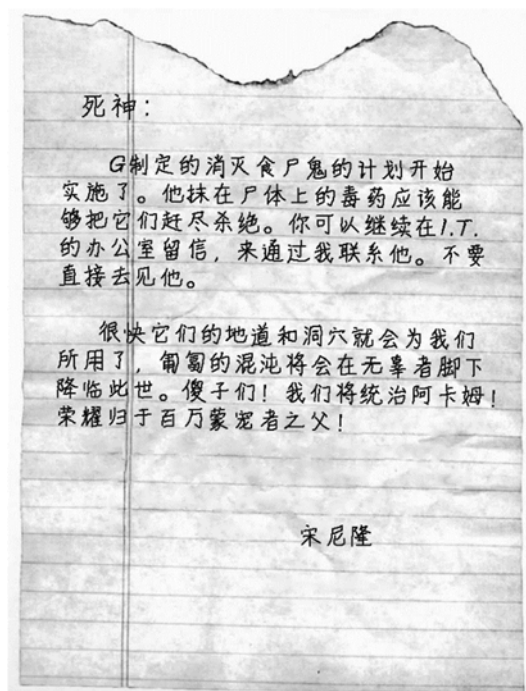 死神：
G制定的消灭食尸鬼的计划开始
实施了。他抹在尸体上的毒药应该能
够把它们赶尽杀绝。你可以继续在I.T.
的办公室留信，来通过我联系他。不要
直接去见他。
很快它们的地道和洞穴就会为我们
所用了，匍匐的混沌将会在无辜者脚下
降临此世。傻子们！我们将统治阿卡姆！
荣耀归于百万蒙宠者之父！
宋尼隆